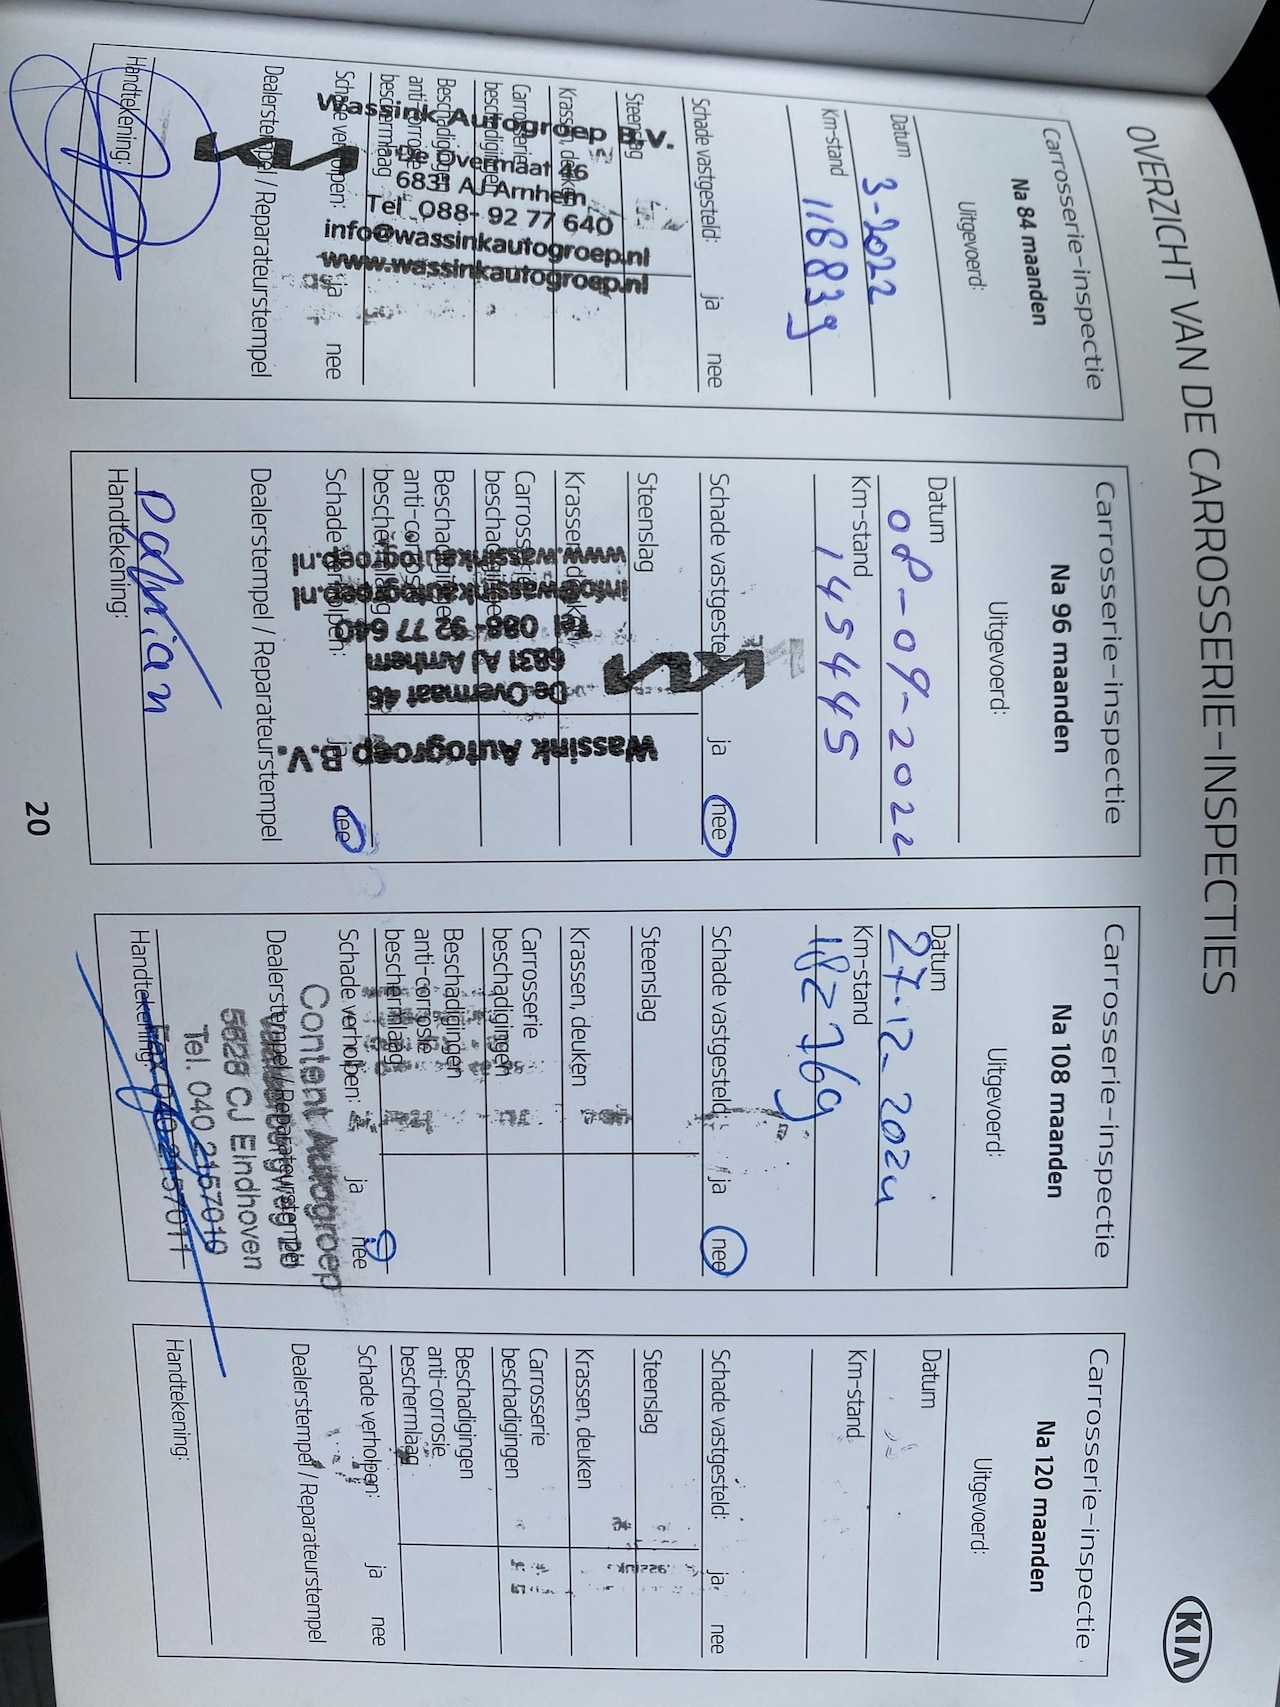 OVERZICHT VAN DE CARROSSERIE-INSPECTIES
KIA
Carrosserie-inspectie
Na 84 maanden
Uitgevoerd:
Datum
3-2022
Km-stand
118839
Schade vastgesteld: ja nee
Steenslag
Krassen, deuken
Carrosserie
beschadigingen
Beschadigingen
anti-corrosie
beschermlaag
Schade verholpen: ja nee
Dealerstempel / Reparateurstempel
Wassink Autogroep B.V.
De Overmaat 46
6831 AJ Arnhem
Tel. 088- 92 77 640
info@wassinkautogroep.nl
www.wassinkautogroep.nl
KIA
Handtekening:
Carrosserie-inspectie
Na 96 maanden
Uitgevoerd:
Datum
08-09-2022
Km-stand
145445
Schade vastgesteld: ja nee
Steenslag
Krassen, deuken
Carrosserie
beschadigingen
Beschadigingen
anti-corrosie
beschermlaag
Schade verholpen: ja nee
Dealerstempel / Reparateurstempel
KIA
Wassink Autogroep B.V.
De Overmaat 46
6831 AJ Arnhem
Tel 088- 92 77 640
info@wassinkautogroep.nl
www.wassinkautogroep.nl
Handtekening:
Carrosserie-inspectie
Na 108 maanden
Uitgevoerd:
Datum
27-12-2024
Km-stand
182769
Schade vastgesteld: ja nee
Steenslag
Krassen, deuken
Carrosserie
beschadigingen
Beschadigingen
anti-corrosie
beschermlaag
Schade verholpen: ja nee
Dealerstempel / Reparateurstempel
Content Autogroep
5628 CJ Eindhoven
Tel. 040 2157010
Fax 040 2157011
Handtekening:
Carrosserie-inspectie
Na 120 maanden
Uitgevoerd:
Datum
Km-stand
Schade vastgesteld: ja nee
Steenslag
Krassen, deuken
Carrosserie
beschadigingen
Beschadigingen
anti-corrosie
beschermlaag
Schade verholpen: ja nee
Dealerstempel / Reparateurstempel
Handtekening:
20